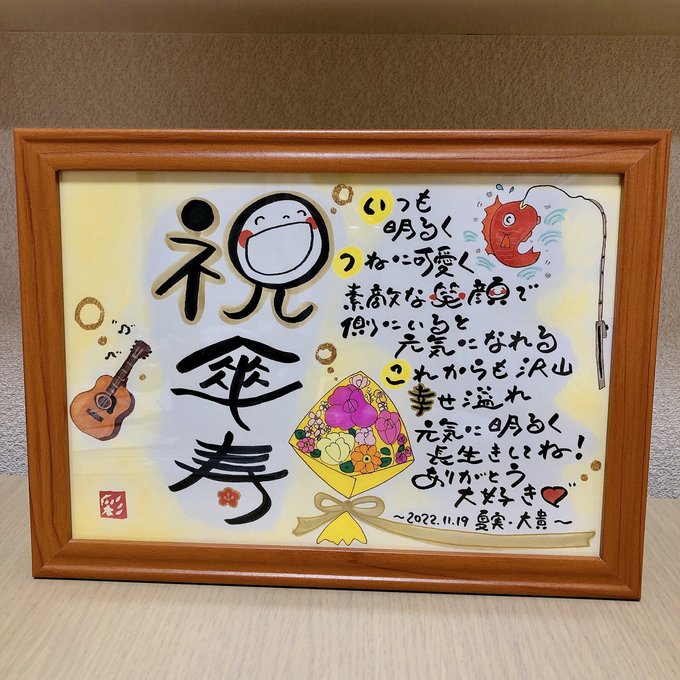 祝
傘寿
いつも
明るく
つねに可愛く
素敵な笑顔で
側にいると
元気になれる
これからも沢山
幸せ溢れ
元気に明るく
長生きしてね！
ありがとう
大好き
～2022.11.19 夏実・大貴～